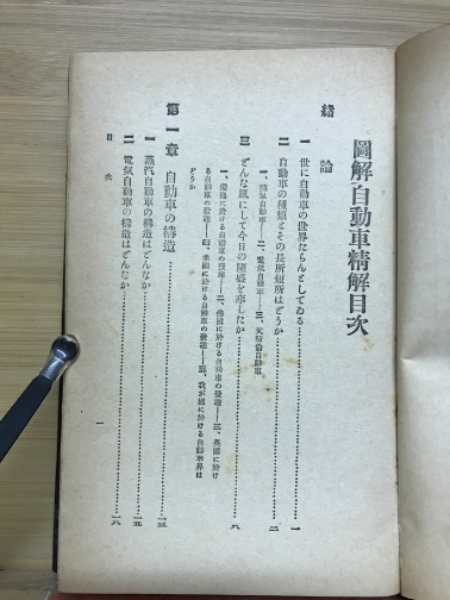 圖解自動車精解目次
緒論
一 世に自動車の世界たらんとしてゐる……一
二 自動車の種類とその長所短所はどうか……二
一、蒸氣自動車――二、電氣自動車――三、瓦斯倫自動車
三 どんな風にして今日の隆盛を來したか……八
る自動車の發達――四、米國に於ける自動車の發達――五、我が國に於ける自動車界は
どうか
第一章 自動車の構造……一五
一 蒸汽自動車の構造はどんなか……一五
二 電氣自動車の構造はどんなか……一八
目次
一